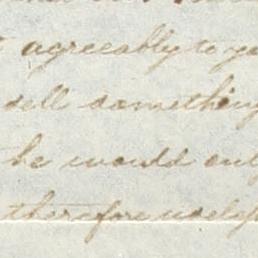 agreeably to yo
sell something
he would only
therefore